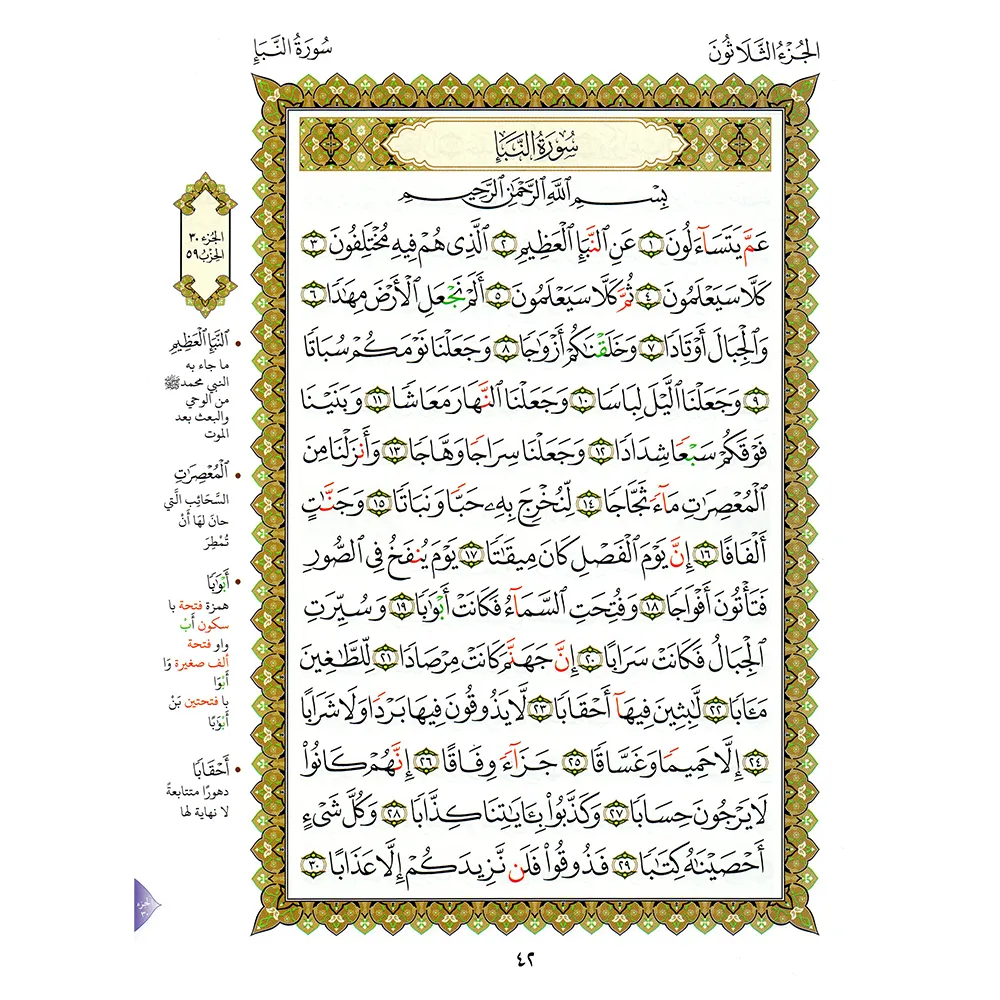 الجُزْءُ الثَّلَاثُونَ
سُورَةُ النَّبَإِ
سُورَةُ النَّبَإِ
بِسْمِ ٱللَّهِ ٱلرَّحْمَٰنِ ٱلرَّحِيمِ
عَمَّ يَتَسَآءَلُونَ ١ عَنِ ٱلنَّبَإِ ٱلْعَظِيمِ ٢ ٱلَّذِى هُمْ فِيهِ مُخْتَلِفُونَ ٣
كَلَّا سَيَعْلَمُونَ ٤ ثُمَّ كَلَّا سَيَعْلَمُونَ ٥ أَلَمْ نَجْعَلِ ٱلْأَرْضَ مِهَٰدًا ٦
وَٱلْجِبَالَ أَوْتَادًا ٧ وَخَلَقْنَٰكُمْ أَزْوَٰجًا ٨ وَجَعَلْنَا نَوْمَكُمْ سُبَاتًا
٩ وَجَعَلْنَا ٱلَّيْلَ لِبَاسًا ١٠ وَجَعَلْنَا ٱلنَّهَارَ مَعَاشًا ١١ وَبَنَيْنَا
فَوْقَكُمْ سَبْعًا شِدَادًا ١٢ وَجَعَلْنَا سِرَاجًا وَهَّاجًا ١٣ وَأَنزَلْنَا مِنَ
ٱلْمُعْصِرَٰتِ مَآءً ثَجَّاجًا ١٤ لِّنُخْرِجَ بِهِۦ حَبًّا وَنَبَاتًا ١٥ وَجَنَّٰتٍ
أَلْفَافًا ١٦ إِنَّ يَوْمَ ٱلْفَصْلِ كَانَ مِيقَٰتًا ١٧ يَوْمَ يُنفَخُ فِى ٱلصُّورِ
فَتَأْتُونَ أَفْوَاجًا ١٨ وَفُتِحَتِ ٱلسَّمَآءُ فَكَانَتْ أَبْوَٰبًا ١٩ وَسُيِّرَتِ
ٱلْجِبَالُ فَكَانَتْ سَرَابًا ٢٠ إِنَّ جَهَنَّمَ كَانَتْ مِرْصَادًا ٢١ لِّلطَّٰغِينَ
مَـَٔابًا ٢٢ لَّٰبِثِينَ فِيهَآ أَحْقَابًا ٢٣ لَّا يَذُوقُونَ فِيهَا بَرْدًا وَلَا شَرَابًا
٢٤ إِلَّا حَمِيمًا وَغَسَّاقًا ٢٥ جَزَآءً وِفَاقًا ٢٦ إِنَّهُمْ كَانُوا۟
لَا يَرْجُونَ حِسَابًا ٢٧ وَكَذَّبُوا۟ بِـَٔايَٰتِنَا كِذَّابًا ٢٨ وَكُلَّ شَىْءٍ
أَحْصَيْنَٰهُ كِتَٰبًا ٢٩ فَذُوقُوا۟ فَلَن نَّزِيدَكُمْ إِلَّا عَذَابًا ٣٠
الجُزء ٣٠
الحِزْبُ ٥٩
• ٱلنَّبَإِ ٱلْعَظِيمِ
ما جاء به
النبي محمد ﷺ
من الوحي
والبعث بعد
الموت
• ٱلْمُعْصِرَٰتِ
السَّحَائِب الَّتي
حانَ لهَا أَنْ
تُمْطِرَ
• أَبْوَٰبًا
همزة فتحة با
سكون أَبْ
واو فتحة
ألف صغيرة وَا
أَبْوَا
با فتحتين بَنْ
أَبْوَٰبًا
• أَحْقَابًا
دهورًا متتابعةً
لا نهاية لها
جزء
٣٠
٤٢